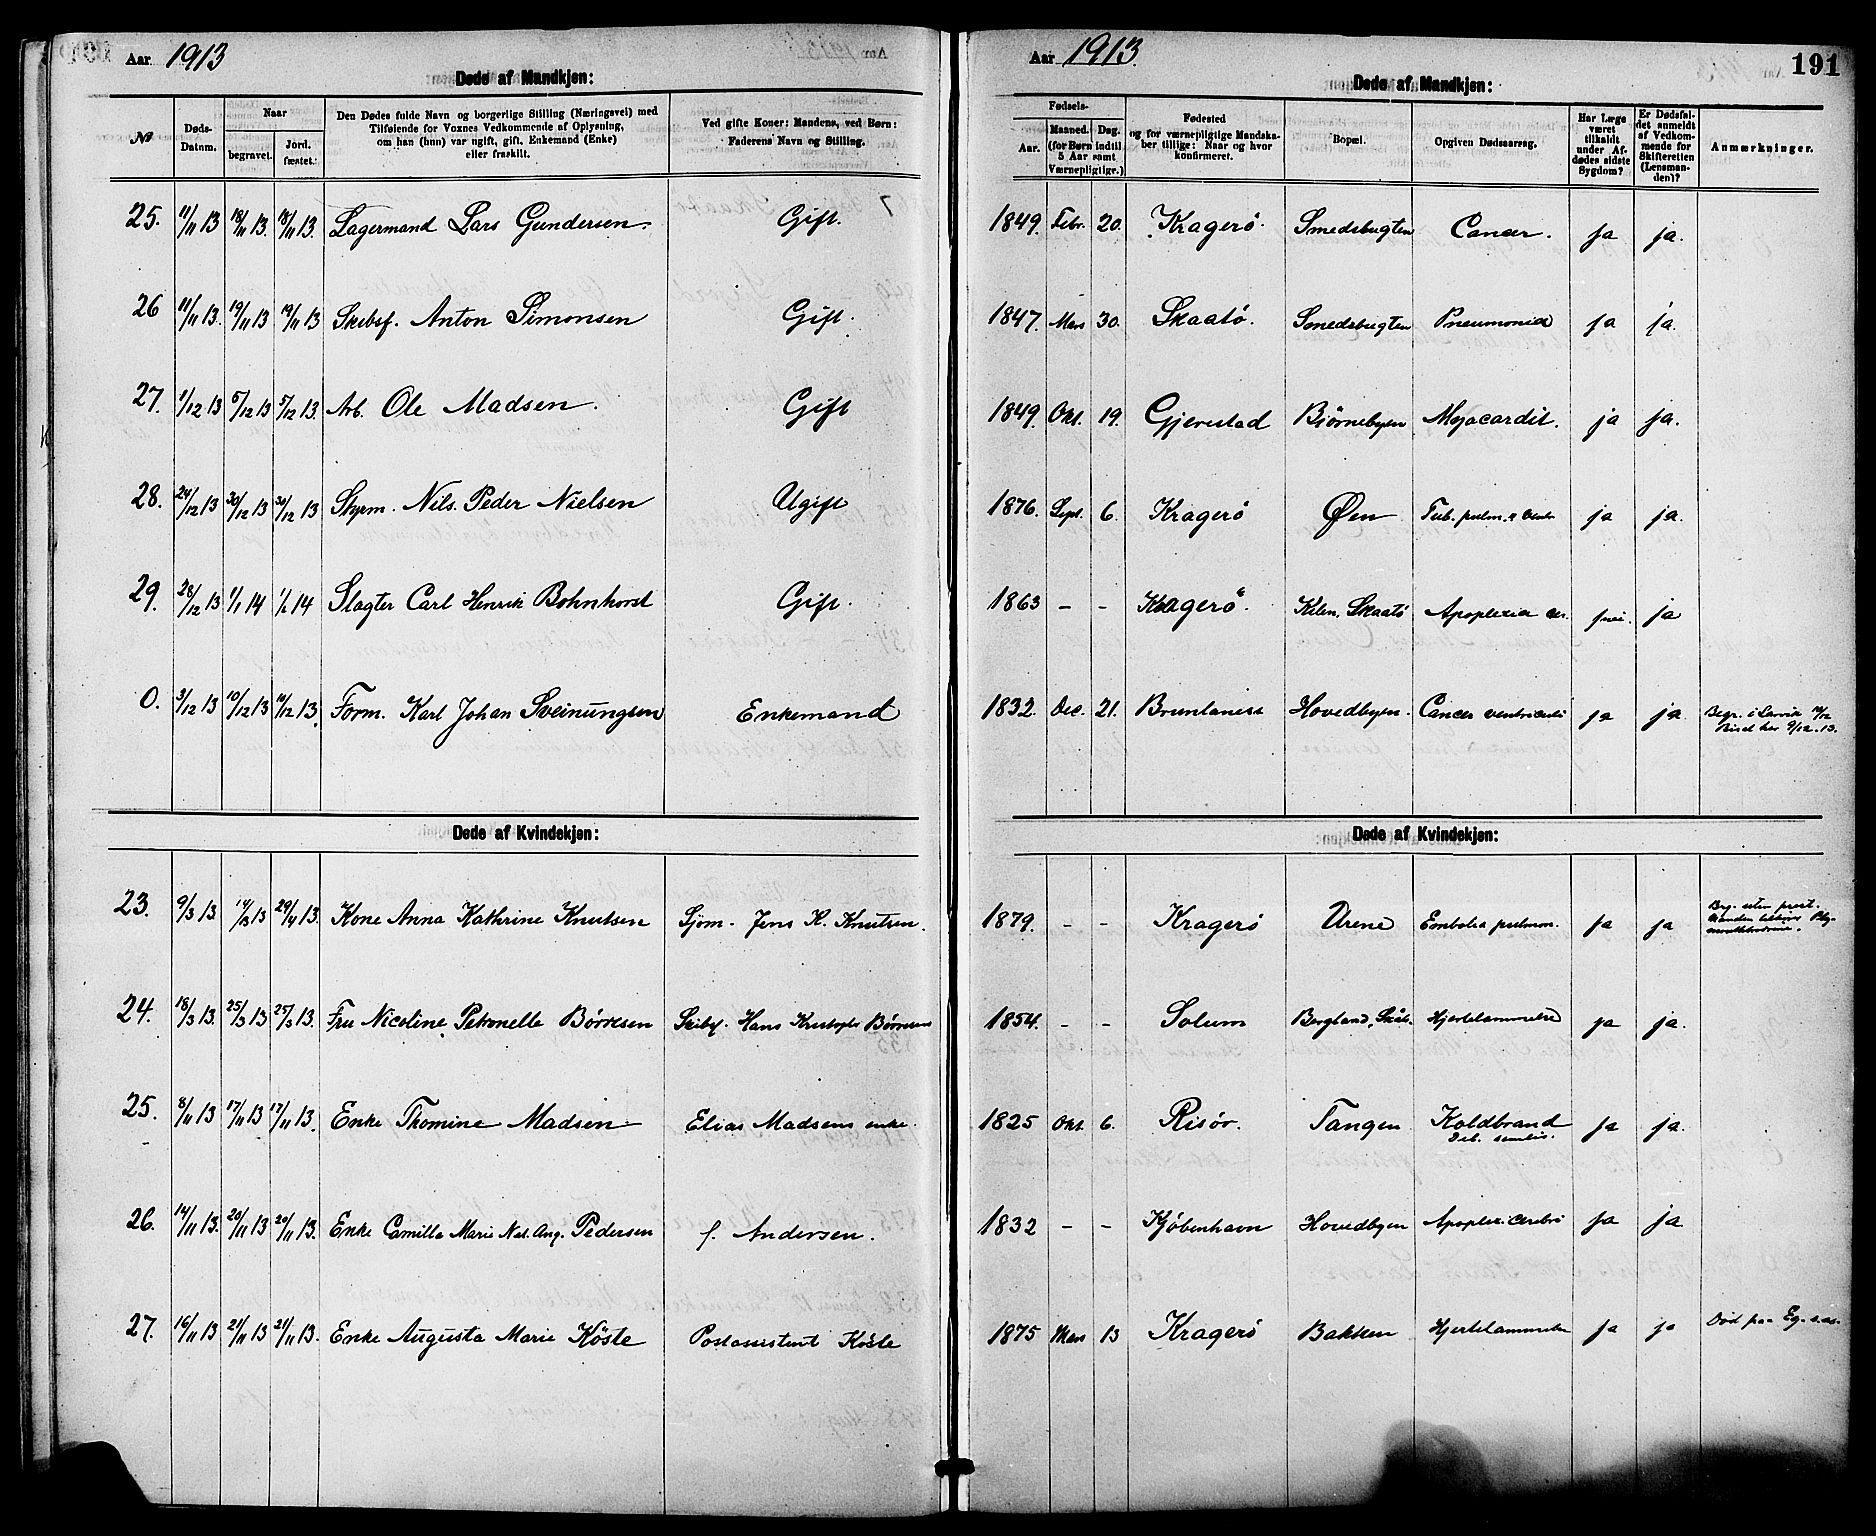 Aar 1913
Døde af Mandkjøn:
№
Døds-Datum.
Naar
begravet.
Jordfæstet.
Den Dødes fulde Navn og borgerlige Stilling (Næringsvei) med
Tilføiende for Voxnes Vedkommende af Oplysning,
om han (hun) var ugift, gift, Enkemand (Enke)
eller fraskilt.
Ved gifte Koner: Mandens, ved Børn:
Faderens Navn og Stilling.
25. 11/11 13 18/11 13. 18/11 13. Lagermand Lars Gundersen. Gift.
26 11/11 13. 19/11 13 19/11 13 Skibsf. Anton Simonsen Gift.
27. 1/12 13 5/12 13 5/12 13. Arb. Ole Madsen. Gift
28. 24/12 13 30/12 13 30/12 13 Styrm. Nils Peder Nielsen Ugift
29. 28/12 13 1/1 14 1/1 14 Slagter Carl Henrik Bohnhorst Gift.
0. 3/12 13 10/12 13 10/12 13. Form. Karl Johan Sveinungsen Enkemand
Døde af Kvindekjøn:
23. 9/3 13 14/3 13 29/4 13. Kone Anna Kathrine Knutsen Sjøm. Jens K. Knutsen.
24. 18/3 13. 25/3 13 25/3 13. Fru Nicoline Petronelle Börresen Skibsf. Hans Kristopher Börresen
25. 8/11 13 17/11 13 17/11 13. Enke Thomine Madsen Elias Madsens enke.
26. 14/11 13. 20/11 13 20/11 13. Enke Camilla Marie Nat. Aug. Pedersen f. Andersen.
27. 16/11 13 21/11 13 21/11 13. Enke Augusta Marie Köste Postassistent Köste
Aar 1913.
191
Døde af Mandkjøn:
Fødsels-
Aar.
Maaned.
Dag.
(for Børn indtil
5 Aar samt
Værnepligtige.)
Fødested
og for værnepligtige Mandska-
ber tillige: Naar og hvor
konfirmeret.
Bopæl.
Opgiven Dødsaarsag.
Har Læge
været
tilkaldt
under Af-
dødes sidste
Sygdom?
Er Dødsfal-
det anmeldt
af Vedkom-
mende for
Skifteretten
(Lensman-
den)?
Anmærkninger.
1849. Febr. 20. Kragerö. Smedsbugten Cancer. ja ja.
1847. Mars 30. Skaatö. Smedsbugten Pneumonia ja ja.
1849. Okt. 19. Gjerestad Björnebyen Myocardit. ja ja.
1876. Sept. 6. Kragerö Øen Tub. pulm. ja ja.
1863 - - Kragerö. Kilen, Skaatö Apoplexia cer. nei. ja
1832. Dec. 21. Brunlanes Hovedbyen. Cancer ventriculi ja ja Begr. i Larvik 10/12
Bisat her 9/12-13.
Døde af Kvindekjøn:
1879. - - Kragerö Urene Embolia pulmon. ja ja
1854. - - Solum Bergland, Skåtö Hjertelammelse ja ja.
1825 Okt. 6. Risör. Tangen Koldbrand ja ja.
Deb. senilis.
1832 - - Kjöbenhavn Hovedbyen Apoplexi cerebri ja ja
1875 Mars 13 Kragerö Bakken Hjertelammelse ja ja Död paa Eg s. as.